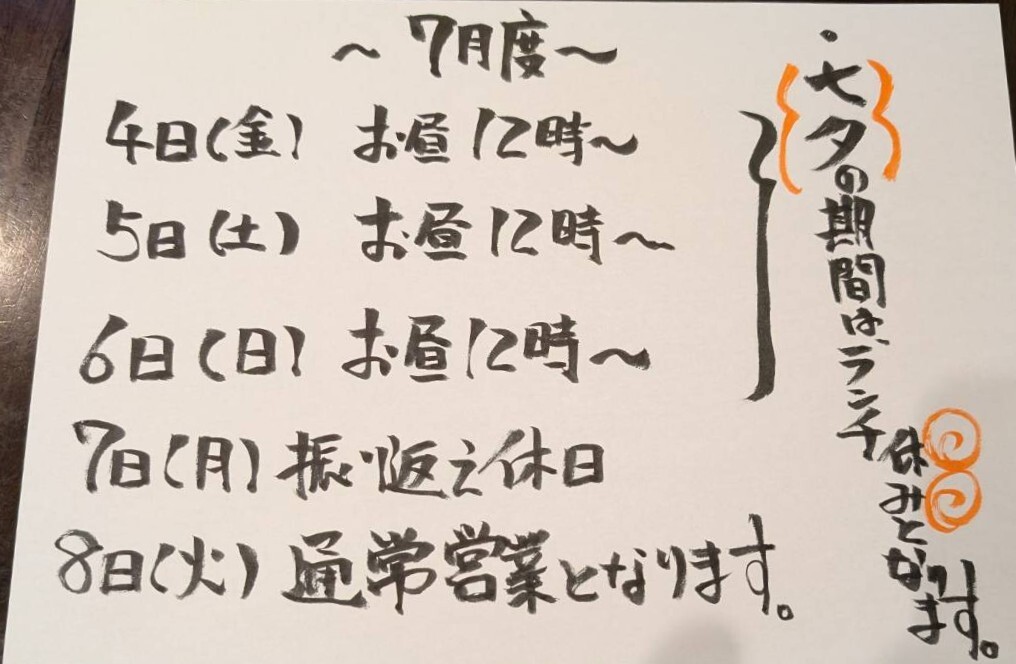 ～7月度～
4日(金) お昼12時～
5日(土) お昼12時～
6日(日) お昼12時～
7日(月) 振り返え休日
8日(火) 通常営業となります。
・七夕の期間は、ランチ
休みとなります。